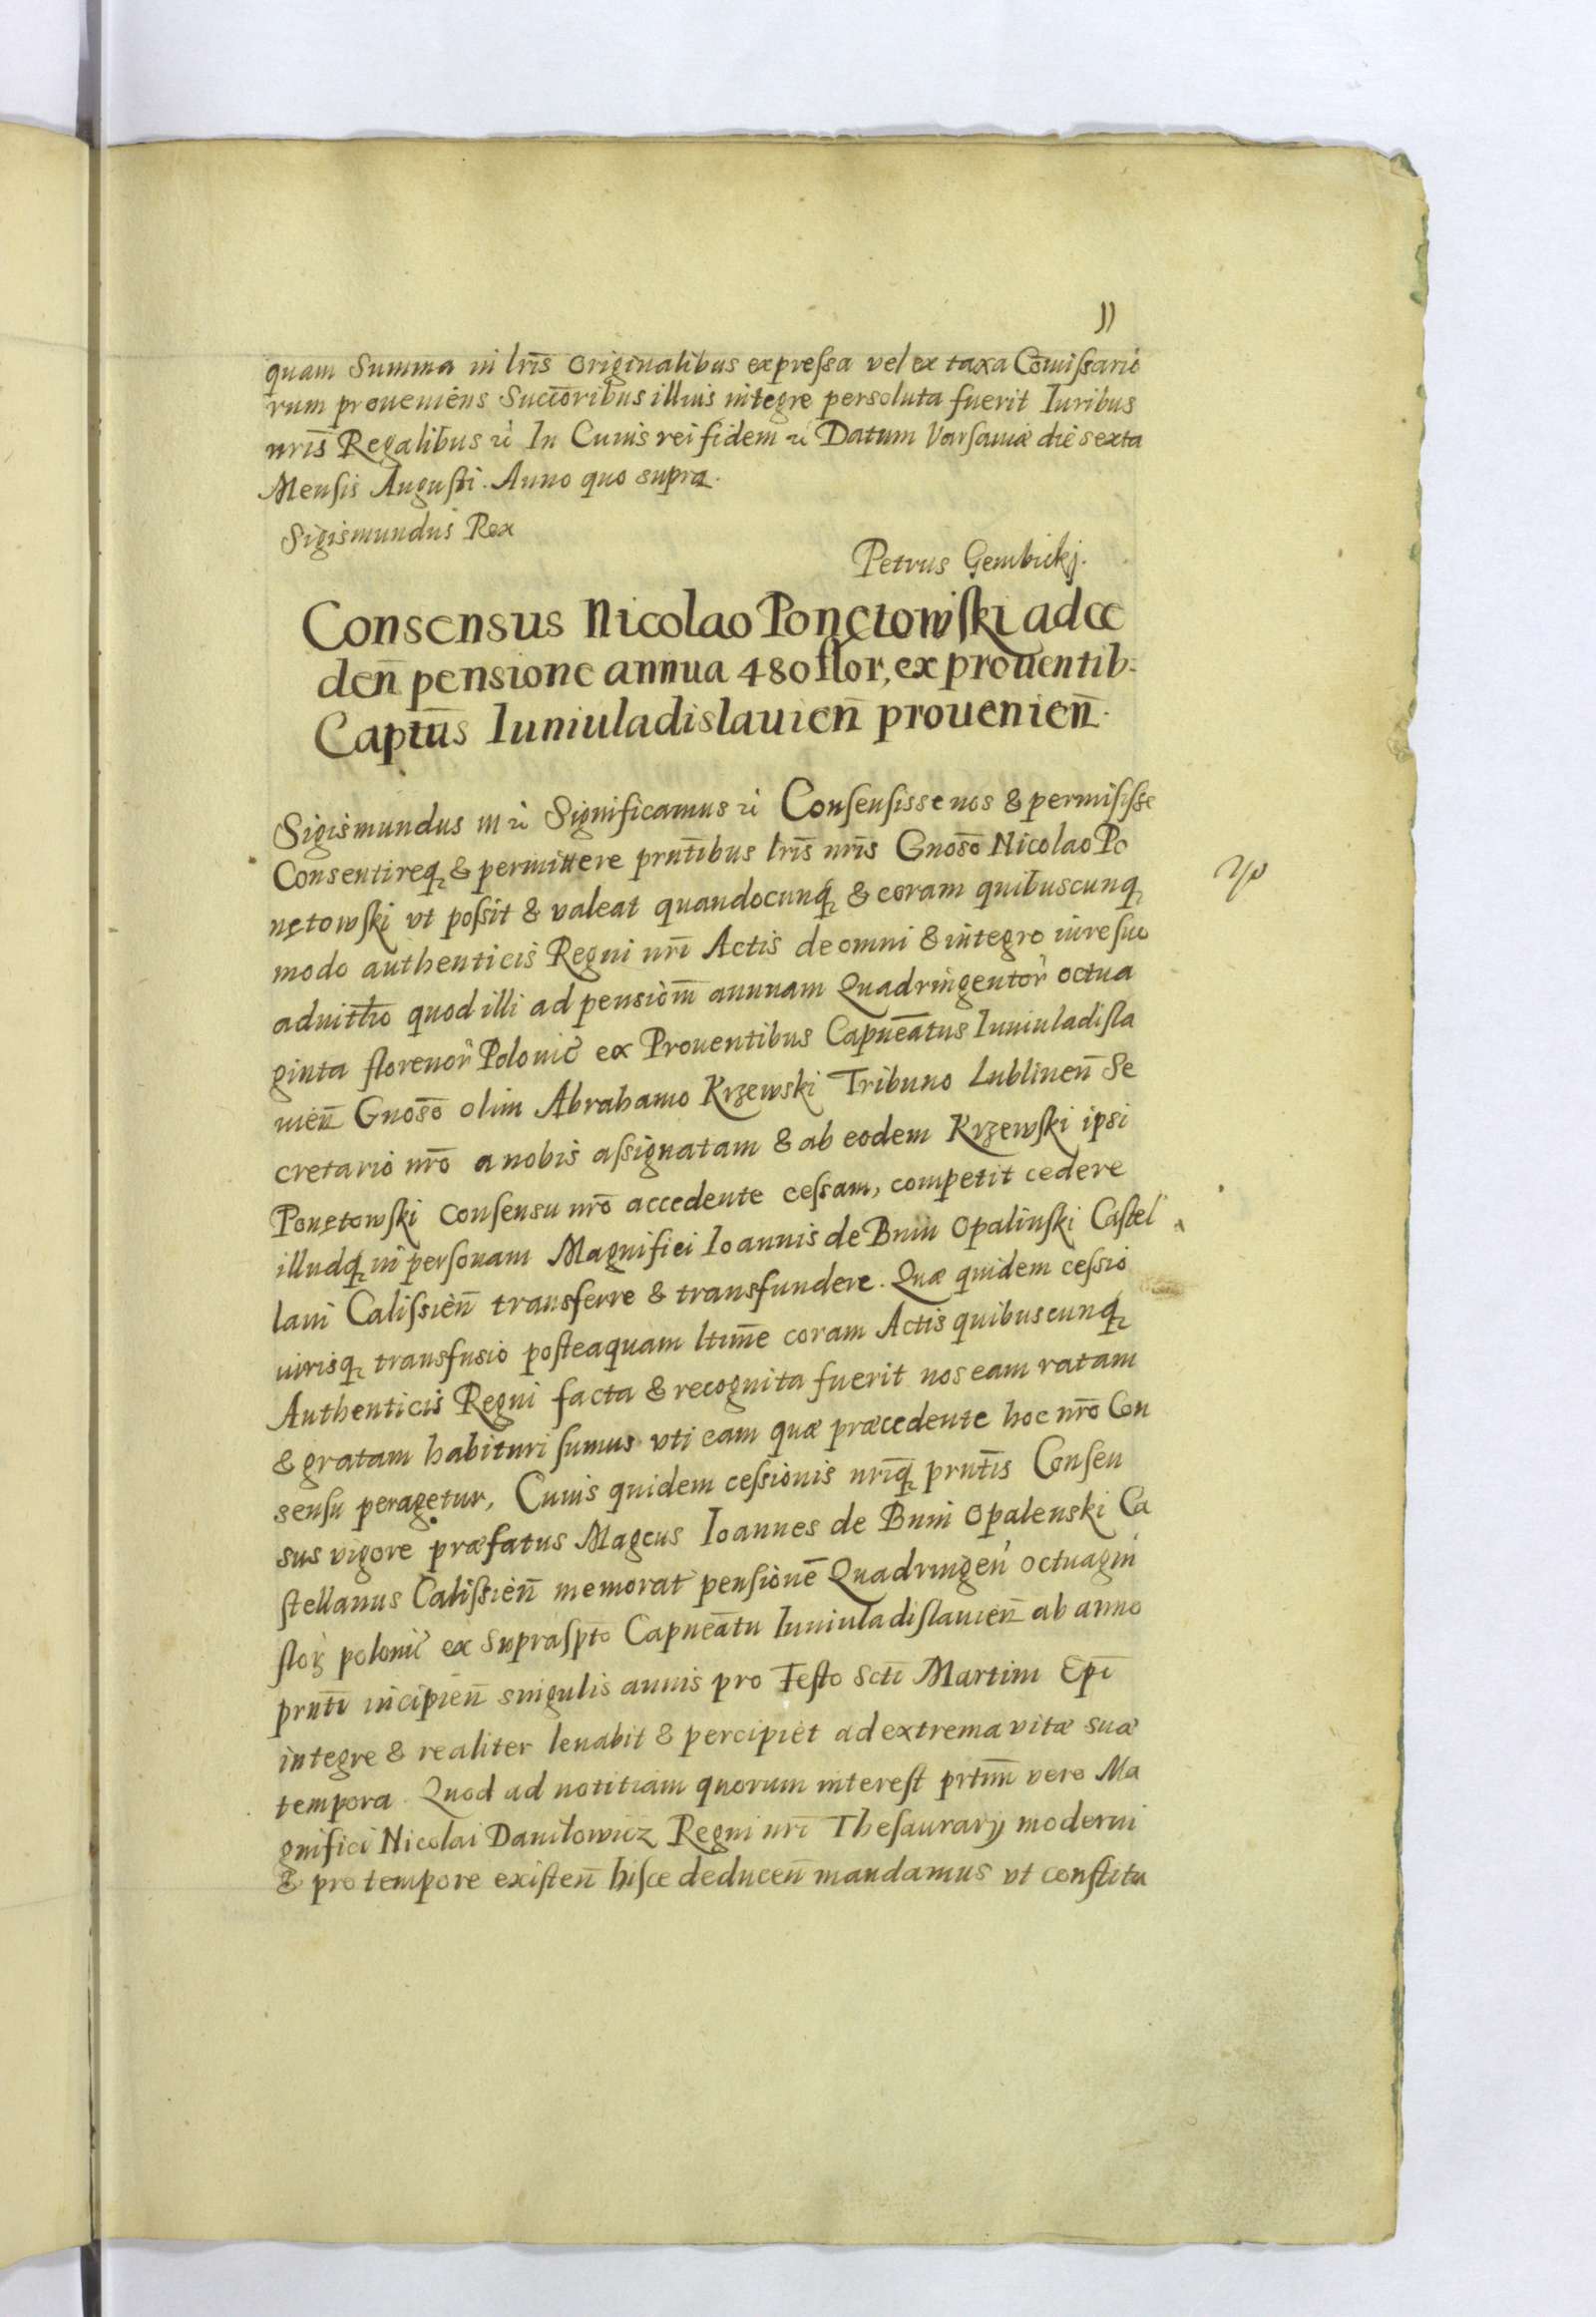 11
quam Summa in lrīs originalibus expressa vel ex taxa Com̄issario
rum proueniens Succ̄oribus illius integre persoluta fuerit Iuribus
nrīs Regalibus &c In Cuius rei fidem &c Datum Varsauiæ die sexta
Mensis Augusti. Anno quo supra.
Sigismundus Rex
Petrus Gembickj.
Consensus Nicolao Ponętowski ad ce
den̄ pensione annua 480 flor, ex prouentib:
Captūs Iuniuladislauien̄ prouenien̄.
Sigismundus III &c Significamus &c Consensisse nos & permisisse
Consentireq & permittere prntībus lrīs nrīs Gnosō Nicolao Po
nętowski vt possit & valeat quandocunq & coram quibuscunq
modo authenticis Regni nrī Actis de omni & integro iure suo
aduitľio quod illi ad pensiōnem annuam Quadringentor octua
ginta florenor Polonic ex Prouentibus Capneātus Iuniuladisla
uien̄ Gnosō olim Abrahamo Krzewski Tribuno Lublinen̄ Se
cretario nrō a nobis assignatam & ab eodem Krzewski ipsi
Ponętowski consensu nrō accedente cessam, competit cedere
illudq in personam Magnifici Ioannis de Bnin Opalinski Castel
lani Calissien̄ transferre & transfundere. Quæ quidem cessio
iurisq transfusio posteaquam ltim̄e coram Actis quibuscunq
Authenticis Regni facta & recognita fuerit nos eam ratam
& gratam habituri sumus vti eam quæ præcedente hoc nrō Con
sensu peragetur, Cuius quidem cessionis nrīq prntīs Consen
sus vigore præfatus Magcus Ioannes de Bnin Opalenski Ca
stellanus Calissien̄ memorat pensionē Quadringen octuagin
flor polonic ex supraspto Capneātu Iuniuladislauien̄ ab anno
prntī incipien̄ singulis annis pro Festo Sctī Martini Epī
integre & realiter leuabit & percipiet ad extrema vitæ suæ
tempora. Quod ad notitiam quorum interest prtim̄ vero Ma
gnifici Nicolai Daniłowicz Regni nrī Thesaurarij moderni
& pro tempore existen̄ hisce deducen̄ mandamus vt constitu